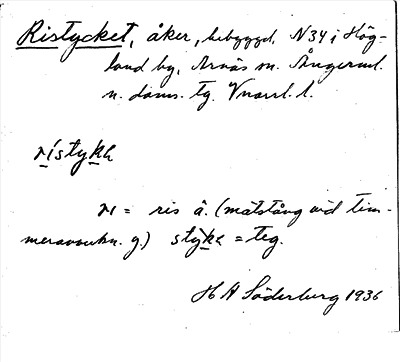 Ristycket, åker, bebyggd, N34 i Hög-
land by, Arnäs sn. Ångerml.
n. doms. tg. Vnorrl. l.
ristykk
ri = ris å. (mätstång vid tim-
meravverkn. g.) stykk = teg.
H A Söderberg 1936